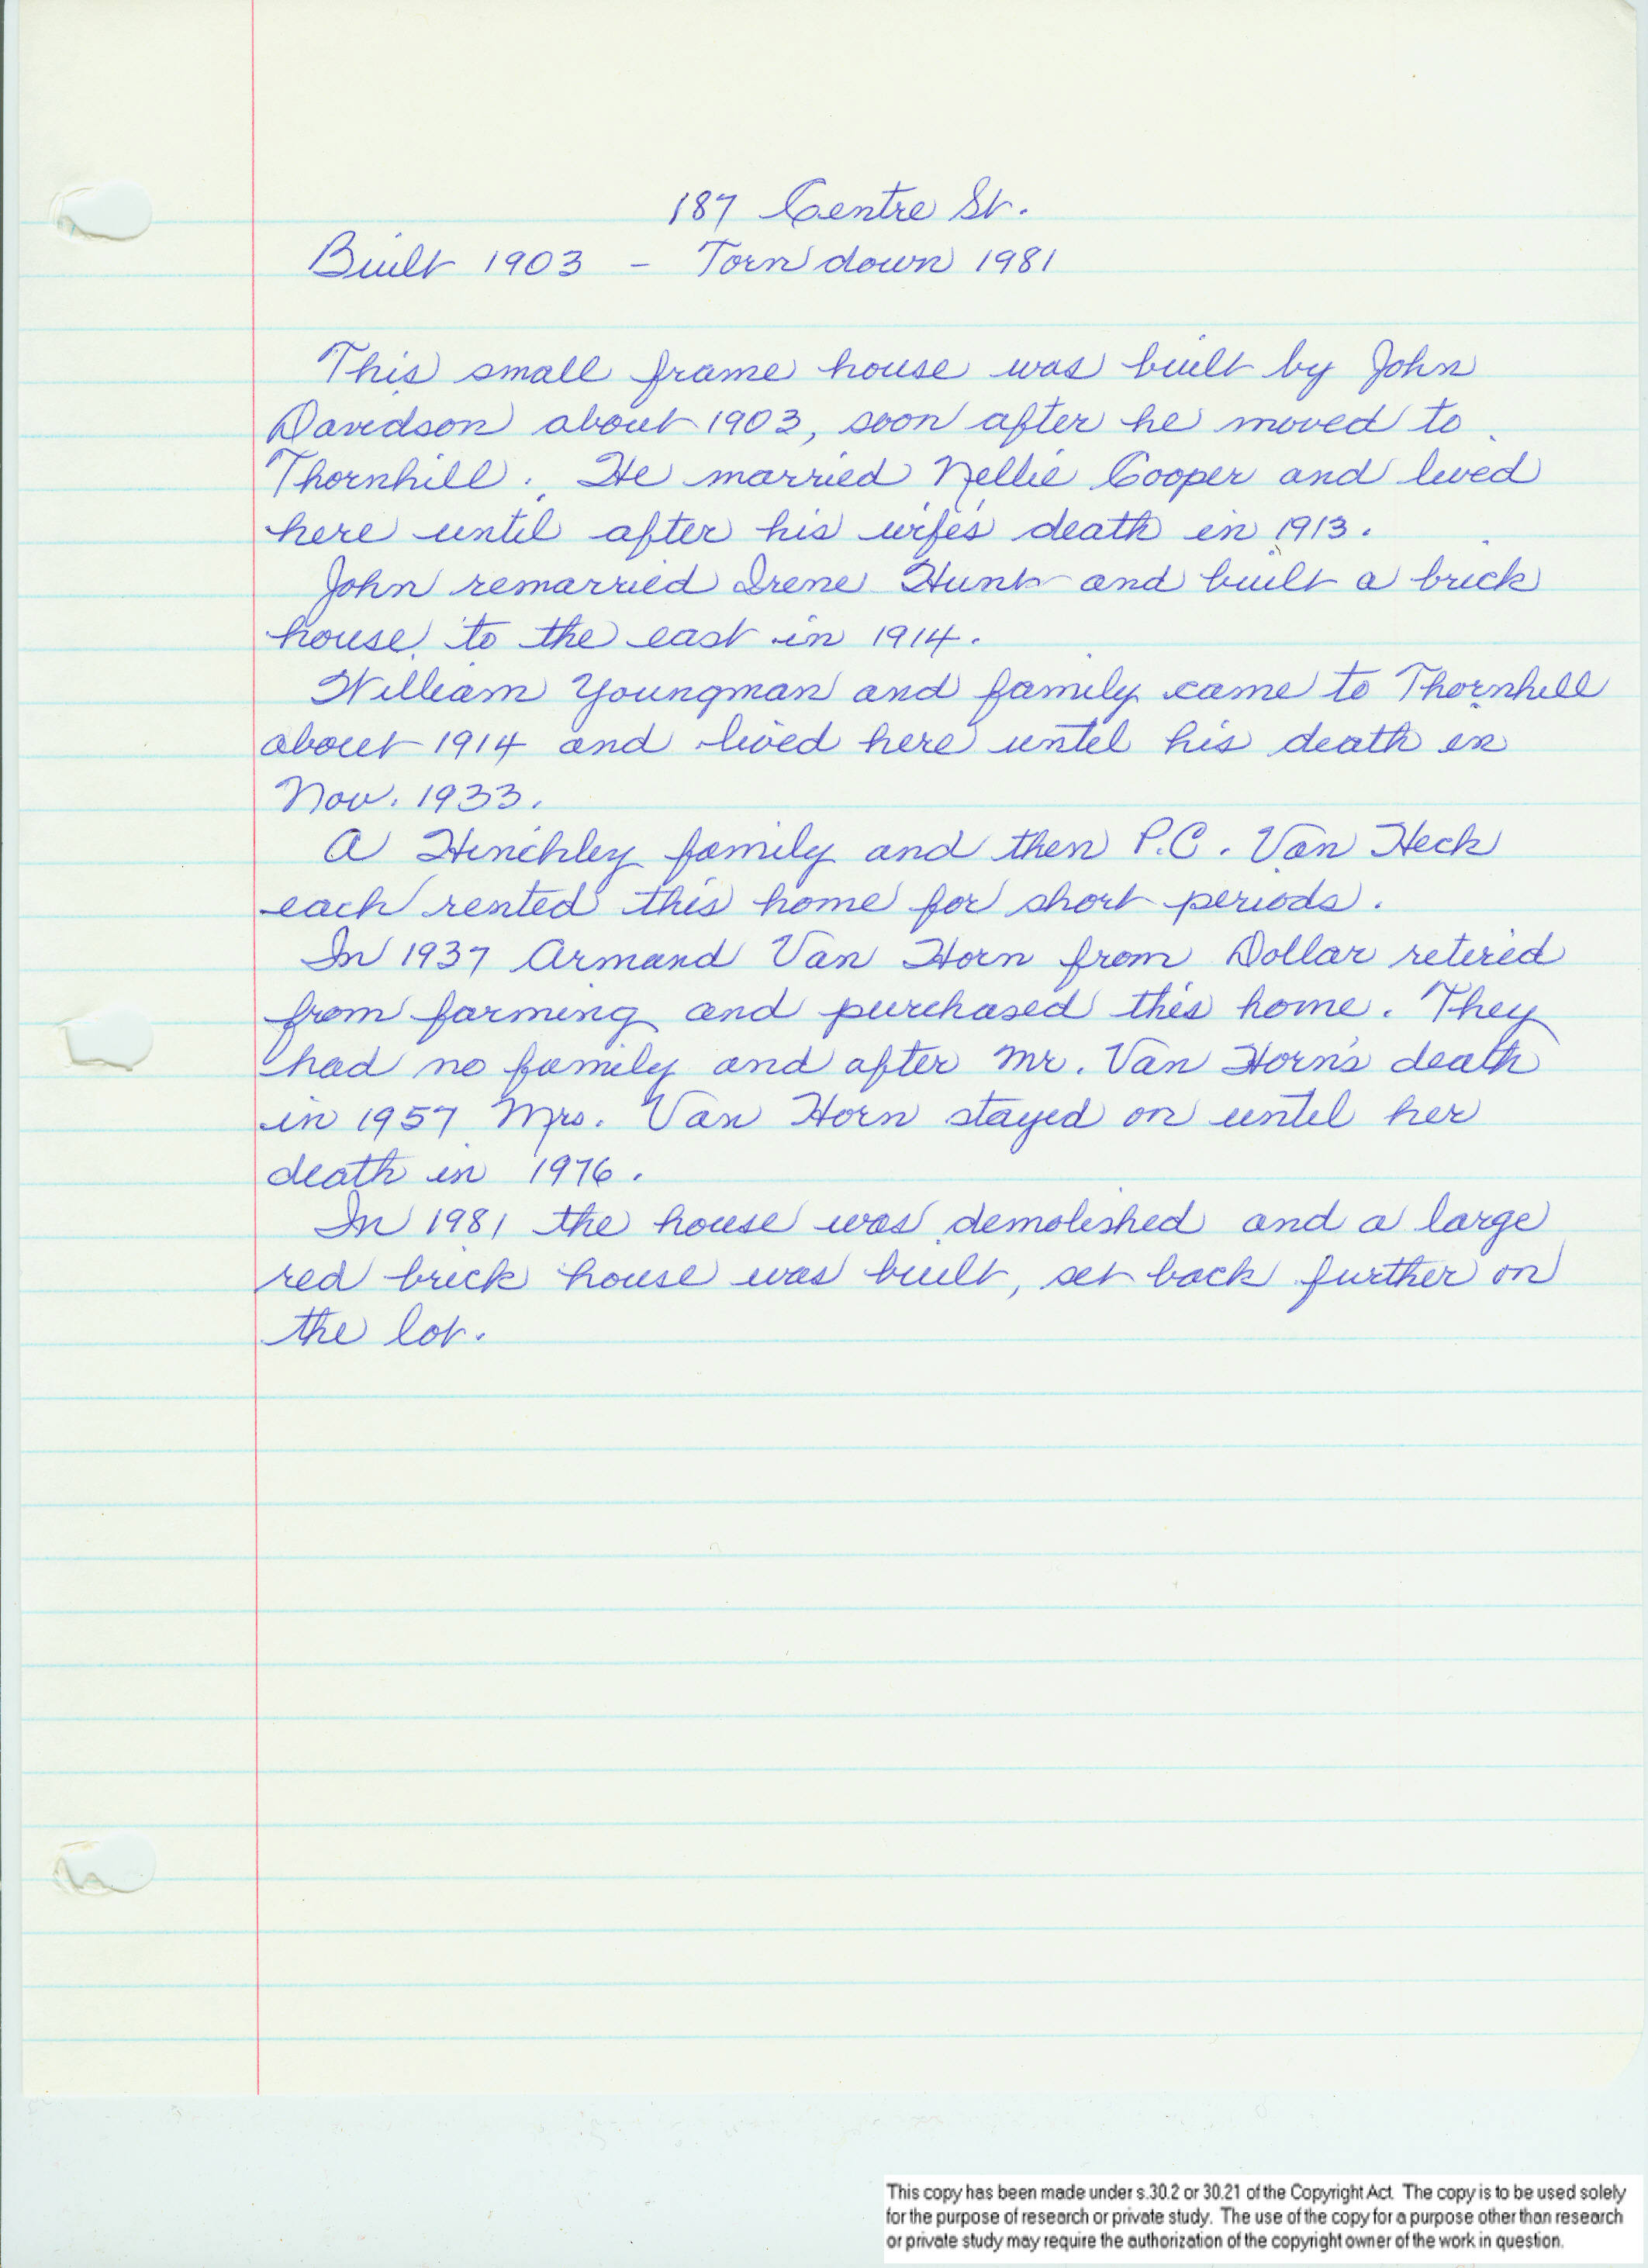 187 Centre St.
Built 1903 - Torn down 1981
This small frame house was built by John
Davidson about 1903, soon after he moved to
Thornhill. He married Nellie Cooper and lived
here until after his wife's death in 1913.
John remarried Irene Hunt and built a brick
house to the east in 1914.
William Youngman and family came to Thornhill
about 1914 and lived here until his death in
Nov. 1933.
A Hinchley family and then P.C. Van Heck
each rented this home for short periods.
In 1937 Armand Van Horn from Dollar retired
from farming and purchased this home. They
had no family and after Mr. Van Horn's death
in 1957 Mrs. Van Horn stayed on until her
death in 1976.
In 1981 the house was demolished and a large
red brick house was built, set back further on
the lot.
This copy has been made under s.30.2 or 30.21 of the Copyright Act. The copy is to be used solely
for the purpose of research or private study. The use of the copy for a purpose other than research
or private study may require the authorization of the copyright owner of the work in question.